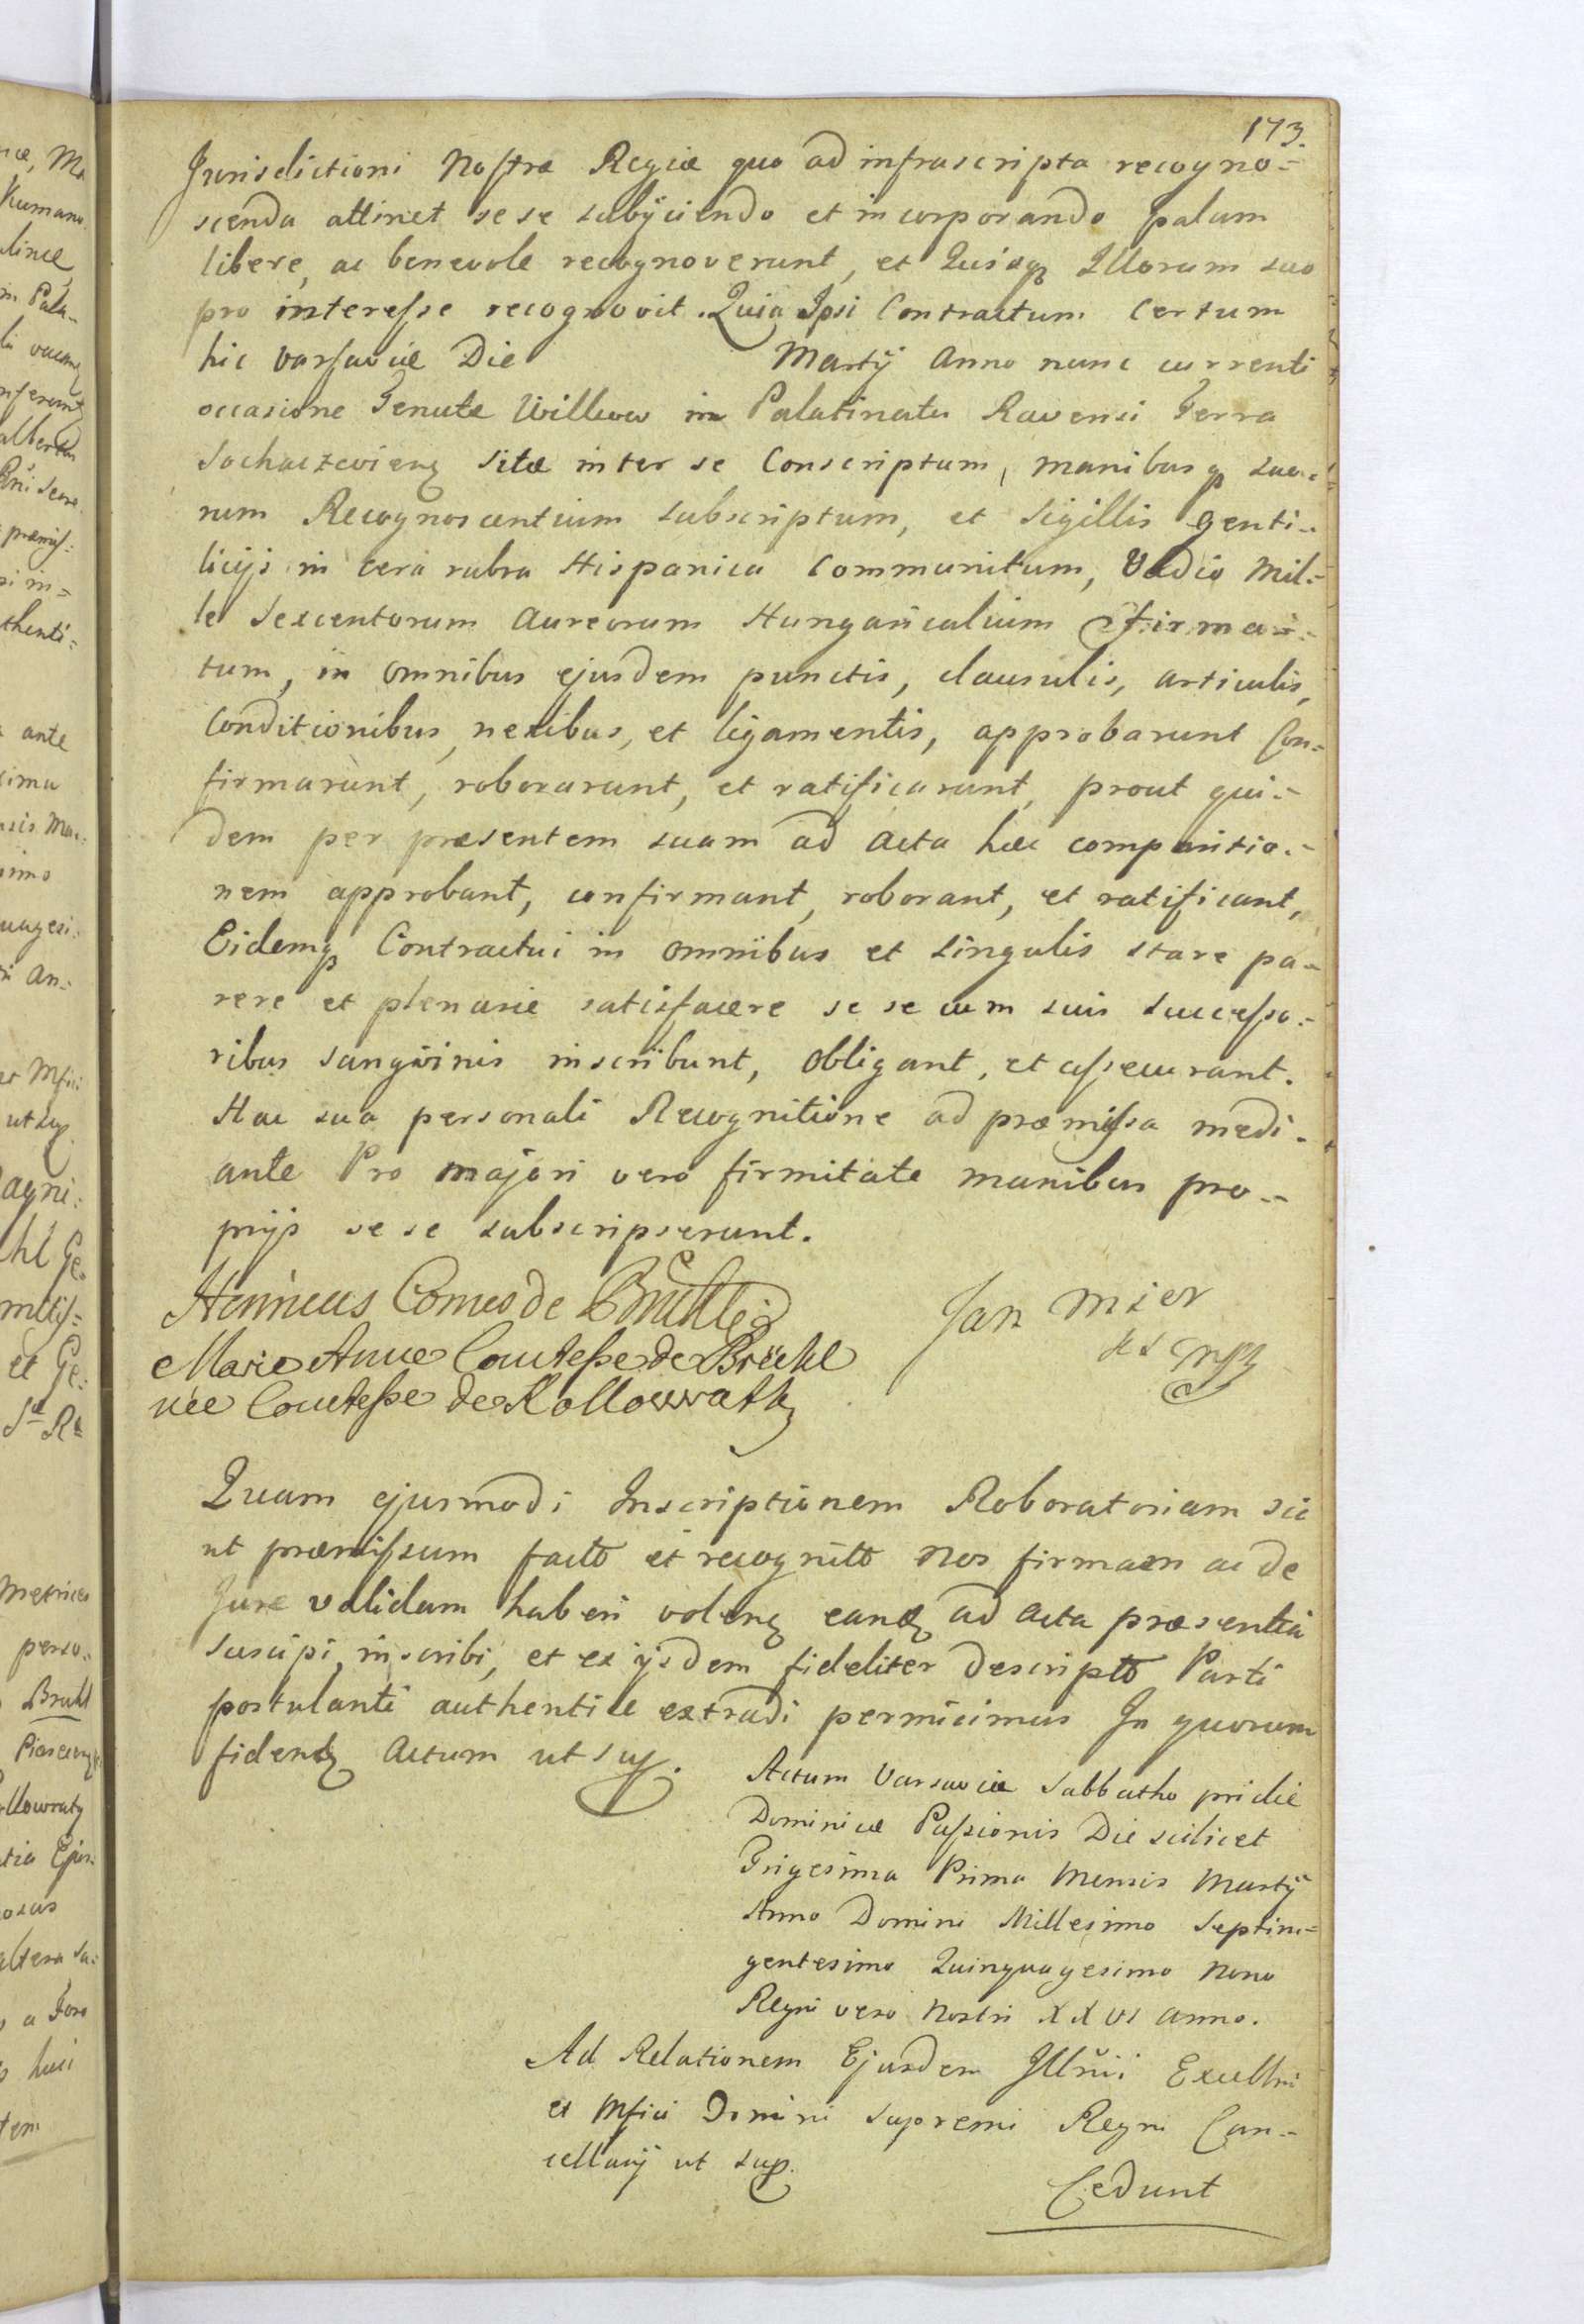 173.
Jurisdictioni Nostræ Regiæ quo ad infrascripta recogno=
scenda attinet sese subÿciendo et incorporando palam
libere, ac benevole recognoverunt, et Quisqȝ Illorum suo
pro interesse recognovit. Quia Ipsi Contractum Certum
hic Varsaviæ Die Martÿ Anno nunc currenti
occasione Tenutæ Willkow in Palatinatu Ravensi Terra
Sochaczevienȝ Sitæ inter se Conscriptum, manibusqȝ suo=
rum Recognoscentium subscriptum, et Sigillis genti=
licÿs in cera rubra Hispanica Communitum, Vadio Mil=
le Sexcentorum Aureorum Hungaricalium firma=
tum, in omnibus ejusdem punctis, clausulis, articulis,
Conditionibus, nexibus, et ligamentis, approbarunt Con=
firmarunt, roborarunt, et ratificarunt, prout qui=
dem per præsentem suam ad Acta hæc comparitio=
nem approbant, confirmant, roborant, et ratificant,
Eidemqȝ Contractui in omnibus et singulis stare pa=
rere et plenarie satisfacere se se cum suis Successo=
ribus sangvinis inscribunt, obligant, et assecurant.
Hac sua personali Recognitione ad præmissa medi=
ante Pro majori vero firmitate manibus pro=
prijs se se subscripserunt.
Henricus Comes de Bruhl
Jan Mier
Marie Anne Comtesse de Brühl
née Comtesse de Kollowrath
Quam ejusmodi Inscriptionem Roboratoriam sic
ut præmissum facto et recognito Nos firmam ac de
Jure validam haberi volenȝ eanȝ ad Acta præsentia
suscipi, inscribi, et ex ÿsdem fideliter descripto Parti
postulanti authentice extradi permisimus In quorum
fidenȝ Actum ut sup.
Actum Varsaviæ Sabbatho pridie
Dominicæ Passionis Die scilicet
Trigesima Prima Mensis Martÿ
Anno Domini Millesimo Septin=
gentesimo Quinquagesimo Nono
Regni vero Nostri XXVI Anno.
Ad Relationem Ejusdem Illrmi Excellmi
et Mfici Domini Supremi Regni Can=
cellarÿ ut sup.
Cedunt